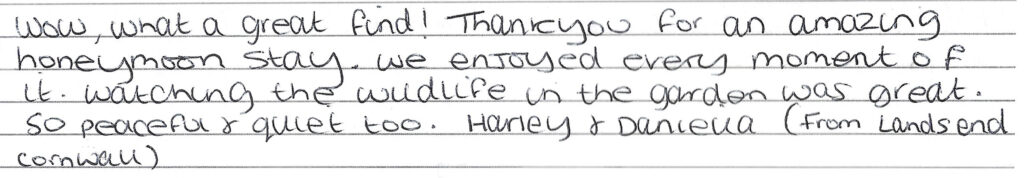 Wow, what a great find! Thankyou for an amazing
honeymoon stay. We enjoyed every moment of
it. Watching the wildlife in the garden was great.
So peaceful & quiet too. Harley & Daniella (From Lands end
Cornwall)